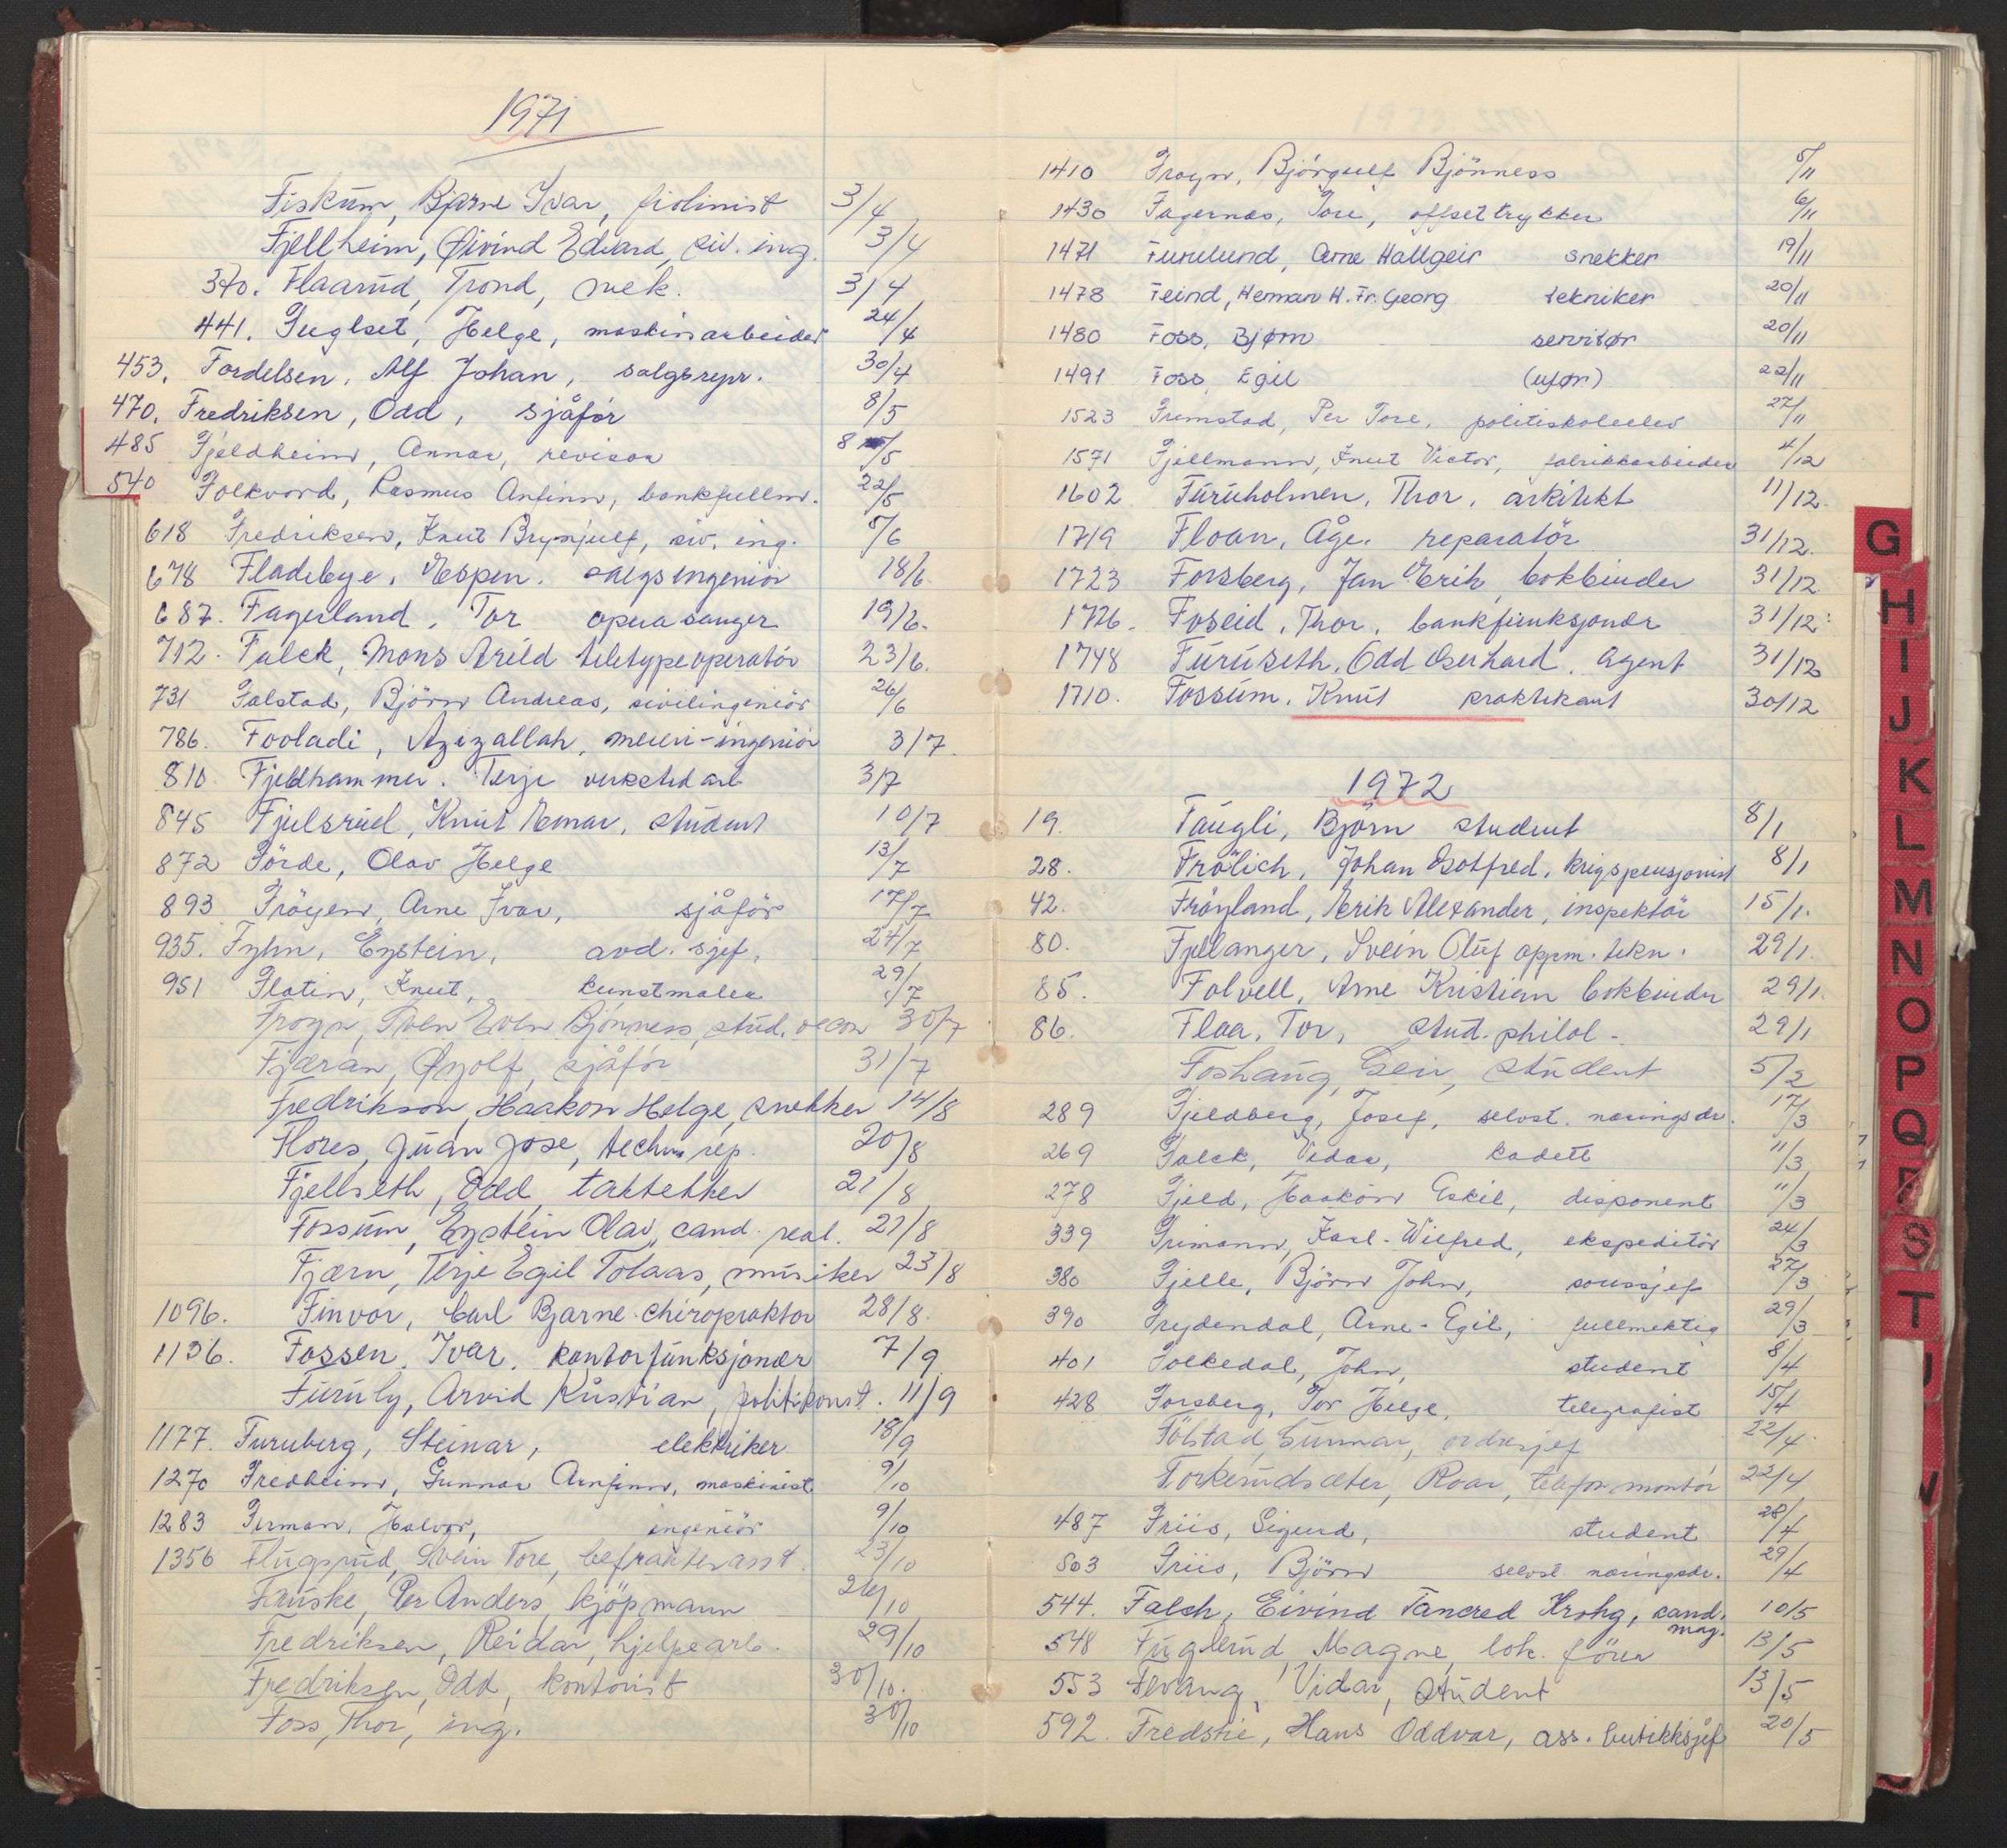 1971
Fiskum, Bjarne Ivar, fiolinist 3/4
Fjellheim, Øivind Edvard, siv. ing. 3/4
370. Flaarud, Trond, mek. 3/4
441. Fuglset, Helge, maskinarbeider 24/4
453. Fordelsen, Alf Johan, salgsrepr. 30/4
470. Fredriksen, Odd, sjåför 8/5
485 Fjeldheim, Annar, revisor 8/5
540 Folkvord, Rasmus Anfinn, bankfullm. 22/5
618 Fredriksen, Knut Brynjulf, siv. ing. 5/6
678 Fladebye, Espen. salgsingeniör 18/6.
687. Fagerland, Tor operasanger 19/6.
712. Falck, Mons Arild teletypeoperatör 23/6.
731 Falstad, Björn Andreas, sivilingeniör 26/6
786. Fooladi, Azizallah, meieri-ingeniör 3/7.
810. Fjeldhammer. Terje verksted arb 3/7
845 Fjulsrud, Knut Remar, student 10/7
872 Förde, Olav Helge 13/7
893 Fröyen, Arne Ivar, sjåför 17/7
935. Fyhn, Eystein, avd. sjef, 24/7
951 Flatin, Knut, kunstmaler 29/7
Frogn, Sven Even Bjönness, stud. oecon 30/7
Fjæran, Øyolf, sjåför 31/7
Fredrikson, Haakon Helge, snekker 14/8
Flores, Juan Jose, techn. rep. 20/8
Fjellseth, Odd, taktekker 21/8
Fossum, Eystein Olav, cand. real. 21/8
Fjærn, Terje Egil Tolaas, musiker 23/8
1096. Finvor, Carl Bjarne. chiropraktor 28/8.
1136. Fossen, Ivar. kontorfunksjonær 7/9
Furuly, Arvid Kristian, politikonst. 11/9
1177. Furuberg, Steinar, elektriker 18/9
1270 Fredheim, Gunnar Arnfinn, maskinist 9/10
1283 Furman, Halvor, ingeniör 9/10
1356 Flugsrud, Svein Tore, befrakterasst. 23/10
Fauske, Per Anders, kjöpmann 26/10
Fredriksen, Reidar, hjelpearb. 29/10
Fredriksen, Odd, kontorist 30/10.
Foss, Thor, ing. 30/10
1410 Frogn, Björgulf Bjönness 5/11
1430 Fagernes, Tore, offsettrykker 6/11
1471 Furulund, Arne Hallgeir snekker 19/11
1478 Feind, Herman H. Fr. Georg tekniker 20/11
1480 Foss, Bjørn servitør 20/11
1491 Foss, Egil (ufør) 22/11
1523 Fremstad, Per Tore, politiskoleelev 27/11
1571 Fjellmann, Knut Victor, fabrikkarbeider 4/12
1602 Furuholmen, Thor, arkitekt 11/12.
1719 Floan, Åge. reparatör 31/12.
1723 Forsberg, Jan Erik, bokbinder 31/12.
1726. Foseid, Thor, bankfunksjonær 31/12.
1748 Furuseth, Odd Gerhard, agent 31/12
1710. Fossum, Knut praktikant 30/12
1972
19. Faugli, Björn student 8/1
28. Frölich, Johan Gotfred, krigspensjonist 8/1
42. Fröyland, Erik Alexander, inspektör 15/1.
80. Fjellanger, Svein Oluf oppm. tekn. 29/1.
85. Folvell, Arne Kristian bokbinder 29/1.
86. Flaa, Tor, stud. philol. 29/1
Foshaug, Geir, student 5/2
289 Fjeldberg, Josef, selvst. næringsdr. 17/3
269 Falck, Vidar, kadett 11/3
278 Fjeld, Haakon Eskil, disponent 11/3
339 Frimann, Karl-Wilfred, ekspeditör 24/3
380 Fjelle, Björn John, soussjef 27/3
390 Frydendal, Arne-Egil, fullmektig 29/3
401 Folkedal, John, student 8/4
428 Forsberg, Tor Helge, telegrafist 15/4
Fölstad, Gunnar, ordresjef 22/4.
Forkerudsæter, Roar, telefonmontör 22/4
487 Friis, Sigurd, student 28/4
503 Friis, Björn selvst. næringsdr. 29/4
544. Falch, Eivind Tancred Krohg, cand. mag. 10/5
548 Fuglerud, Magne, lok. förer 13/5
553 Fevang, Vidar, student 13/5
592. Fredstie, Hans Oddvar, ass. butikksjef 20/5
G
H
I
J
K
L
M
N
O
P
Q
R
S
T